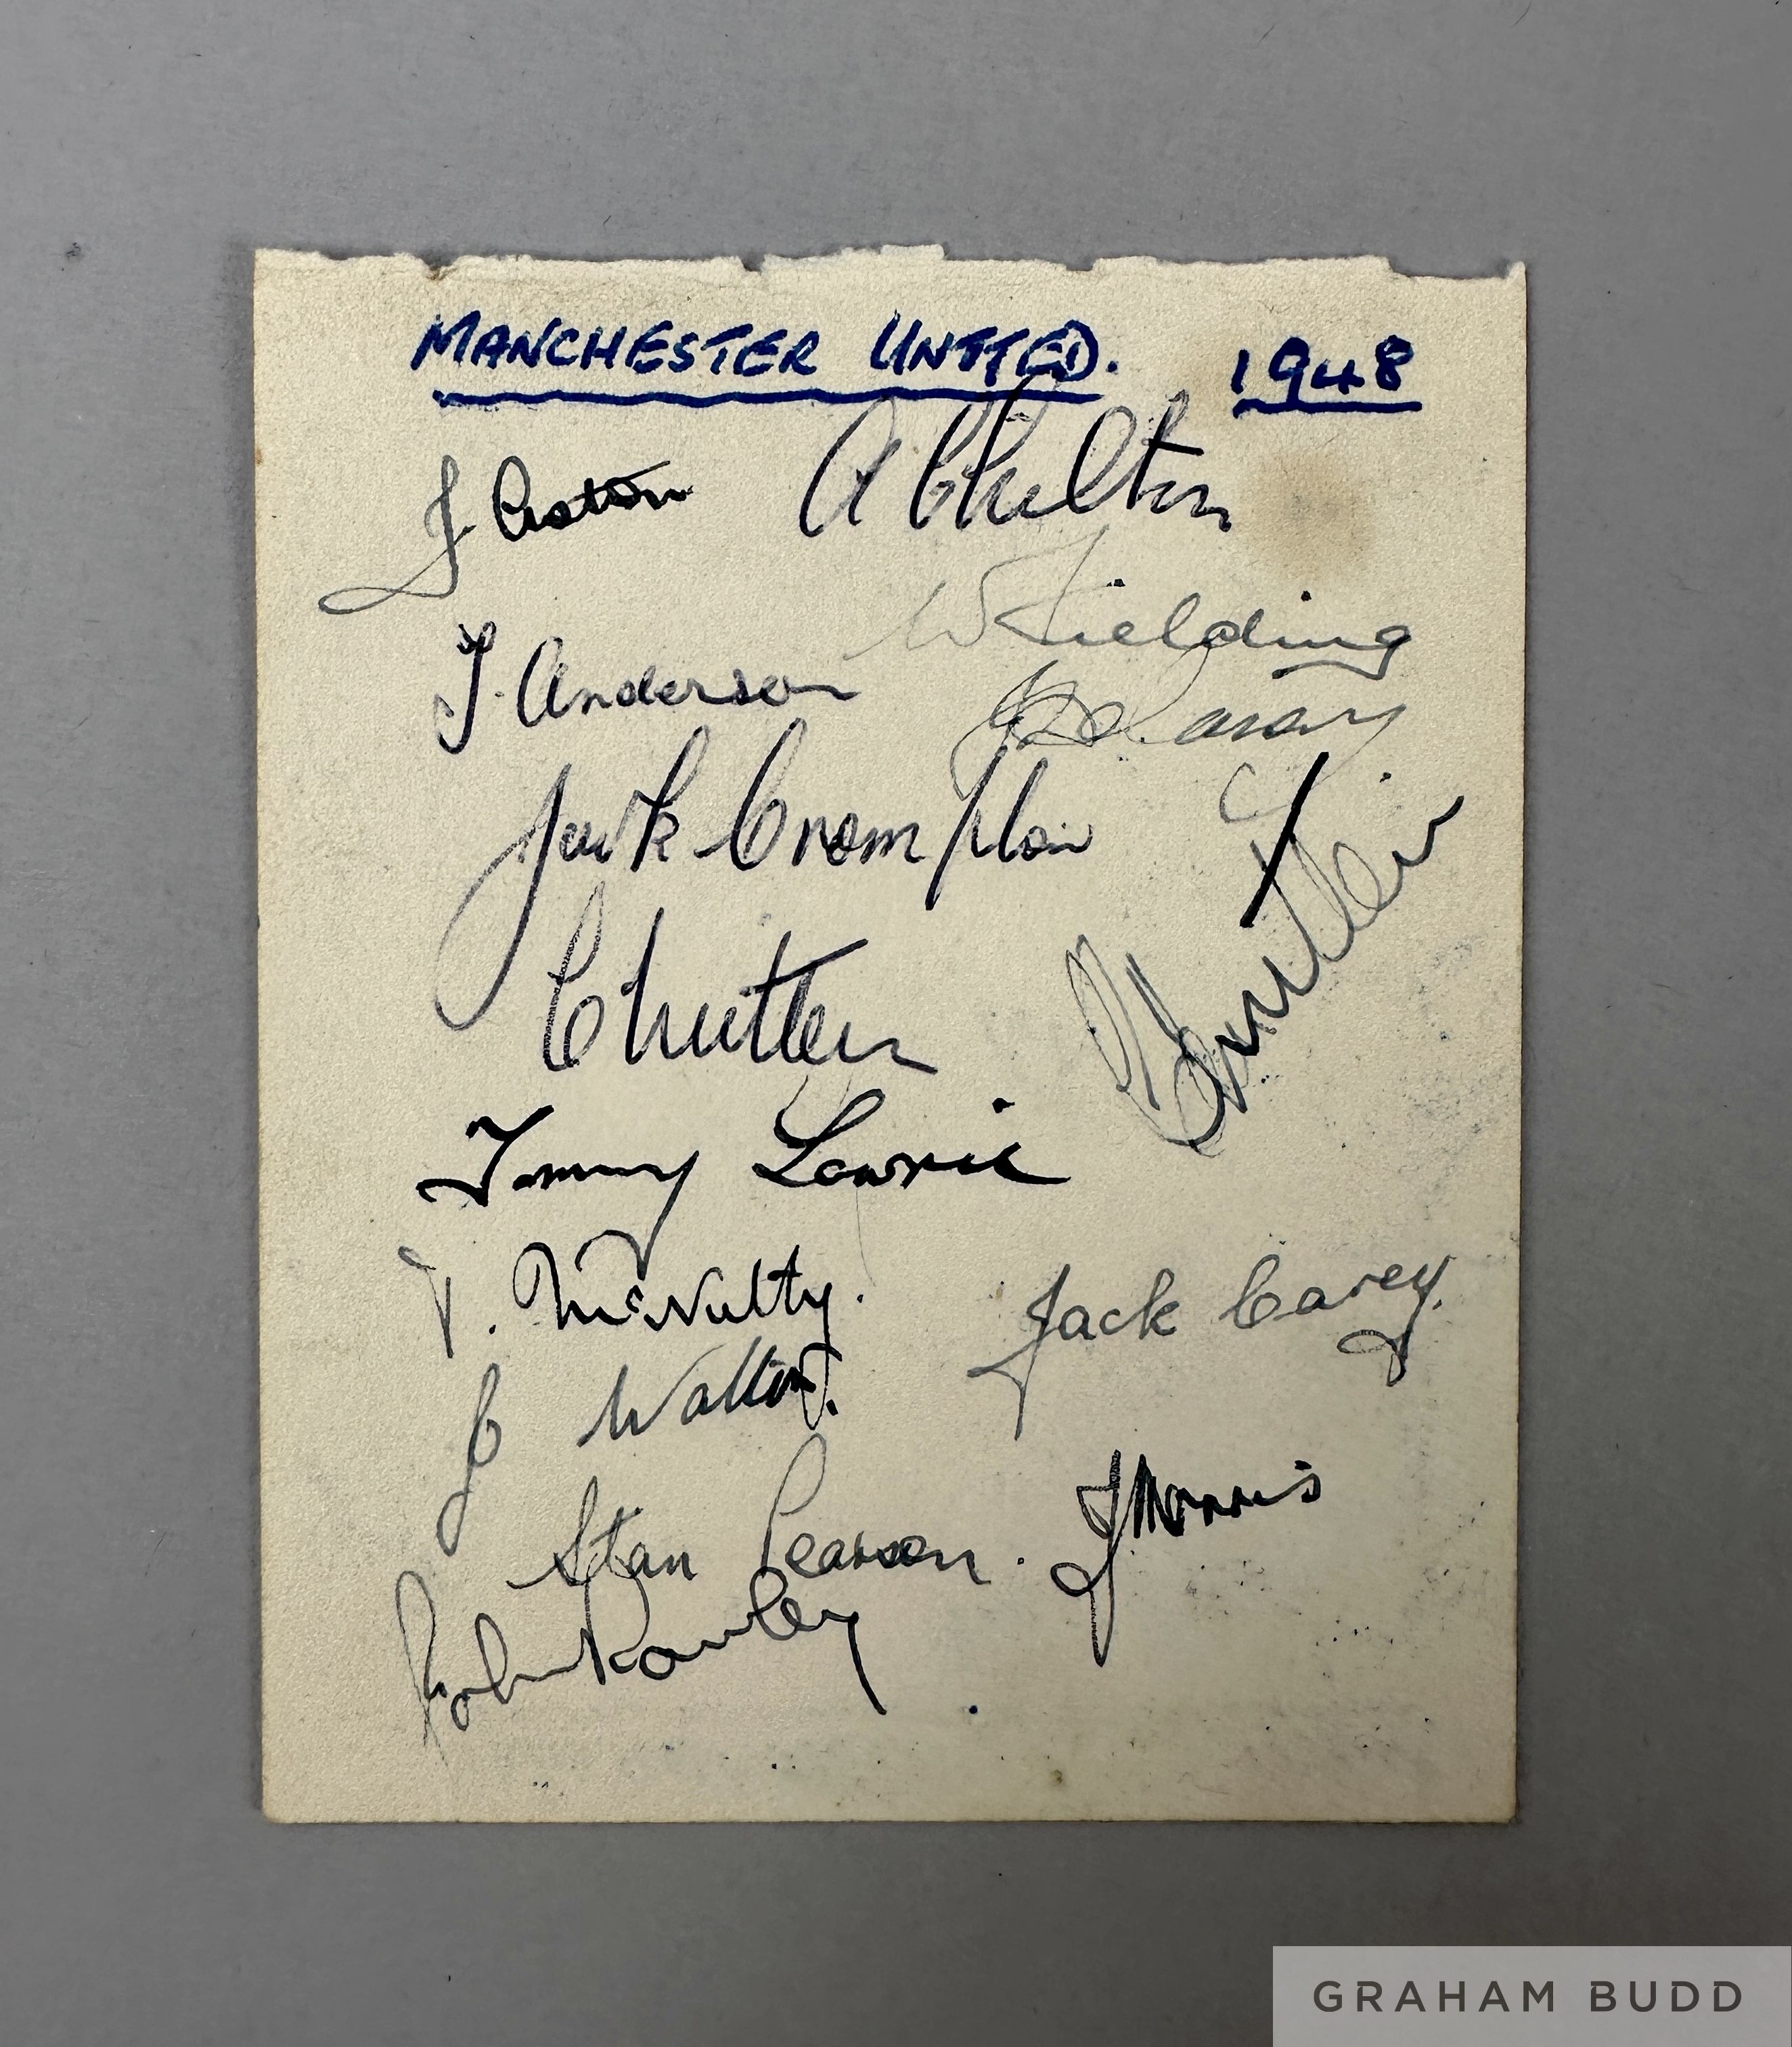 MANCHESTER UNITED. 1948
J Aston
A Chilton
W Fielding
J. Anderson
Jack Crompton
Tommy Lowrie
T. McNulty.
Jack Carey.
J Walton.
J Morris
Stan Pearson.
John Rowley
GRAHAM BUDD